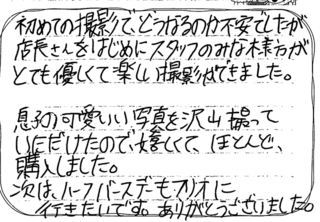 初めての撮影で、どうなるのか不安でしたが
店長さんをはじめにスタッフのみな様方が
とても優しくて楽しい撮影ができました。
息子の可愛いい写真を沢山撮って
いただけたので、嬉しくて、ほとんど、
購入しました。
次は、ハーフバースデーもフリオに
行きたいです。ありがとうございました。